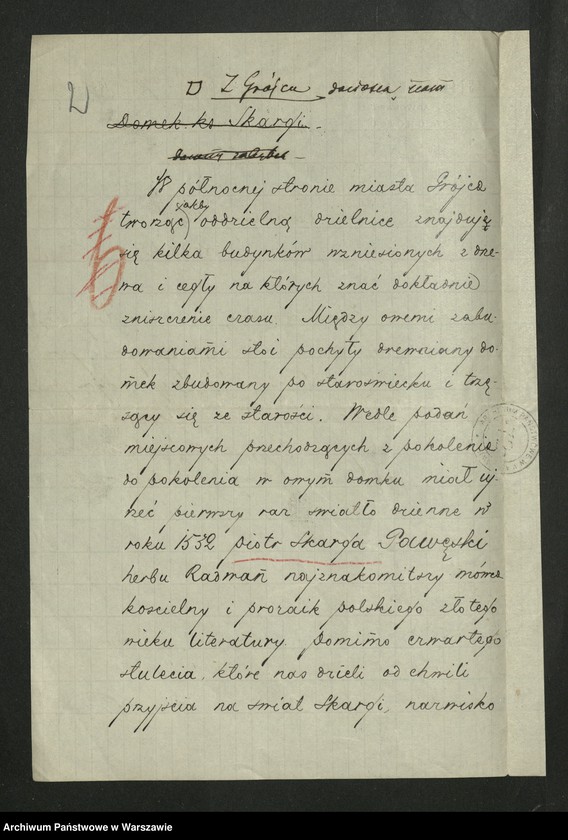 2)
Z Grójca donoszą nam
Domek ks Skargi.
W północnej stronie miasta Grójca
jakby
tworząc oddzielną dzielnicę znajdują
się kilka budynków wzniesionych z drze-
wa i cegły na których znać dokładnie
zniszczenie czasu. Między owemi zabu-
dowaniami stoi pochyły drewniany do-
mek zbudowany po staroświecku i trzę-
sący się ze starości. Wedle podań
miejscowych przechodzących z pokolenia
do pokolenia w owym domku miał uj-
rzeć pierwszy raz światło dzienne w
roku 1532 Piotr Skarga Pawęski
herbu Radwan najznakomitszy mówca
kościelny i prozaik polskiego złotego
wieku literatury. Pomimo czwartego
stulecia, które nas dzieli od chwili
przyjścia na świat Skargi, narwisko
Archiwum Państwowe w Warszawie